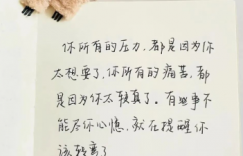 你所有的压力,都是因为你
太想要了,你所有的痛苦,都
是因为你太较真了。有些事不
能尽你心意,就在提醒你
该转弯了